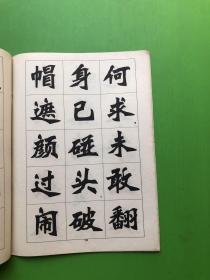 何求未敢翻
身已碰头破
帽遮颜过闹